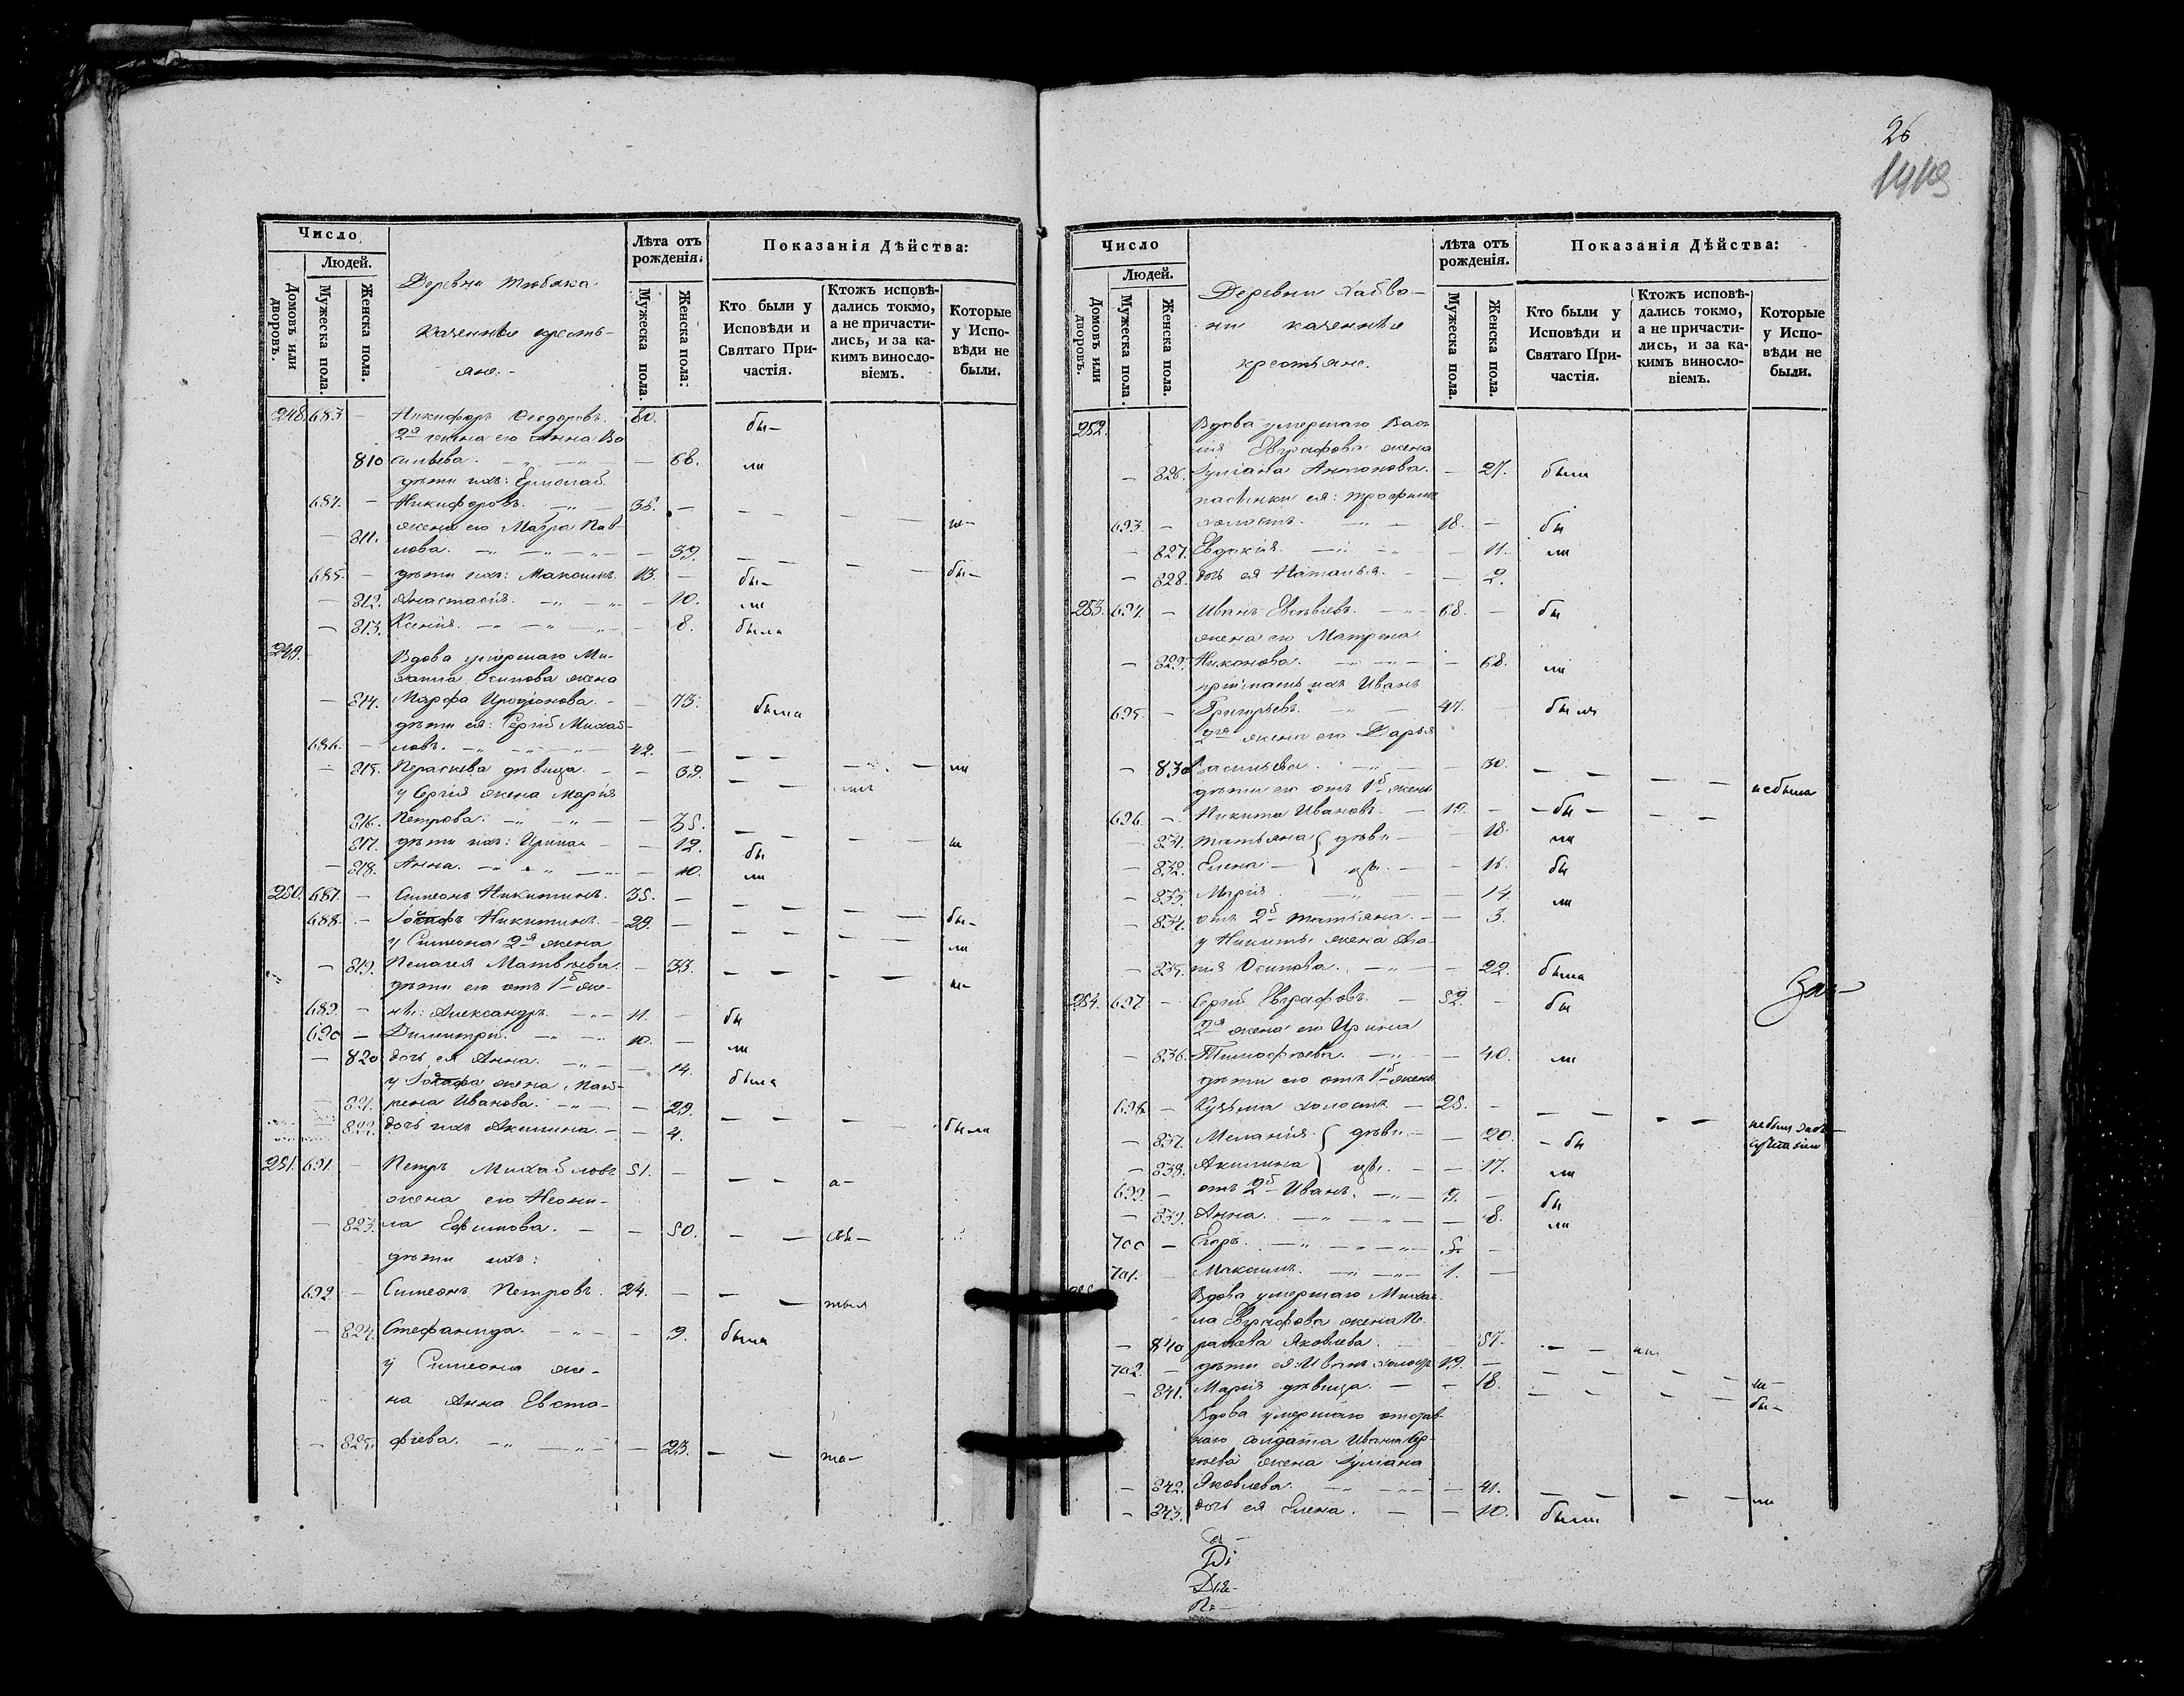 Число
Людей.
Домовъ или дворовъ.
Мужеска пола.
Женска пола.
Деревни
казенные кресть-
яне.-
Лѣта отъ рожденія.
Мужеска пола.
Женска пола.
Показанія Дѣйства:
Кто были у Исповѣди и Святаго Причастія.
Ктожъ исповѣ-
дались токмо,
а не причасти-
лись, и за ка-
кимъ винословіемъ.
Которые у Испо-
вѣди не были.
248. 683 — Никифоръ Ѳеодоровъ. 60. бы-
2я жена его Анна Ва
810 сильева. — 68. ли
дѣти ихъ: Ермолай
684. — Никифоровъ. — 35. —
— 811. жена его Мавра Пав-
лова. — 39.
685. — дѣти ихъ: Максимъ. 13. — бы- бы-
— 812. Анастасія. — 10. ли
— 813. Ксенія. — 8. была
249. Вдова умершаго Ми-
хаила Осипова жена
— 814. Марфа Иродіонова. — 73. была
дѣти ея: Сергій Михай-
686. — ловъ. — 42. —
— 815. Параскева дѣвица. — 39. ли
у Сергія жена Марія
816. Петрова. — 35.
817. дѣти ихъ: Ирина — 12. бы
— 818. Анна. — 10. ли
250. 687. — Симеонъ Никитинъ. 35. —
688. — Никитинъ. — 29. — бы-
у Симеона 2я жена ли
— 819. Пелагея Матвѣева. — 33.
дѣти его отъ 1й же-
689. — ны: Александръ. — 11. — бы
690 — Димитрій. — 10. — ли
— 820 дочь ея Анна. — 14. была
у жена Мат-
— 821. рена Иванова. — 29.
822. дочь ихъ Акилина. — 4. были
251. 691. — Петръ Михайловъ 51. —
жена его Неони-
— 823. ла Ефимова. — 50.
дѣти ихъ:
692. — Симеонъ Петровъ. 24. —
— 824. Стефанида. — 9. была
у Симеона же-
на Анна Евста-
— 825. фіева. — 23.
26
1419
Число
Людей.
Домовъ или дворовъ.
Мужеска пола.
Женска пола.
Деревни
казенные
крестьяне.
Лѣта отъ рожденія.
Мужеска пола.
Женска пола.
Показанія Дѣйства:
Кто были у Исповѣди и Святаго Причастія.
Ктожъ исповѣ-
дались токмо,
а не причасти-
лись, и за ка-
кимъ винословіемъ.
Которые у Испо-
вѣди не были.
252. Вдова умершаго Васи
лія Евграфова жена
— 826. Іуліана Антонова. — 27. была
пасынки ея: Трофимъ
693. — холостъ. — 18. — бы
— 827. Евдокія. — 11. ли
— 828. дочь ея Наталья. — 2.
253. 694. — Иванъ 68. — бы
жена его Матрена
— 829. Никонова. — 68. ли
пріймакъ ихъ Иванъ
695. — Григорьевъ. — 47. — былъ
2я жена его Дарья
— 830 Васильева. — 30.
дѣти его отъ 1й жены небыла
696. — Никита Ивановъ. — 19. — бы —
— 831. Татьяна дѣви — 18. ли
— 832. Елена — цы. — 16. бы
— 833. Марія — 14. ли
— 834. отъ 2й Татьяна. — 3.
у Никиты жена Ага-
— 835. пія Осипова. — 22. была
254. 697. — Сергій Евграфовъ. — 52. — бы
2я жена его Ирина
— 836. Тимофѣева. — 40. ли
дѣти его отъ 1й жены
698. — Кузьма холостъ — 25. —
— 837. Меланія дѣви — 20. — бы
— 838. Акилина цы. — 17. ли
699. — отъ 2й Иванъ. — 9. — бы
— 839. Анна. — 8. ли
700 — Егоръ. — 5. —
701. Максимъ. — 1. —
Вдова умершаго Михаи
ла Евграфова жена Па
— 840 раскева Яковлева. — 57.
702. — дѣти ея: Иванъ холостъ 19. —
— 841. Марія дѣвица. — 18. бы-
Вдова умершаго отстав-
наго солдата Ивана Сер-
гѣева жена Іуліана
— 842. Яковлева. — 41. ли
— 843. дочь ея Елена. — 10. была